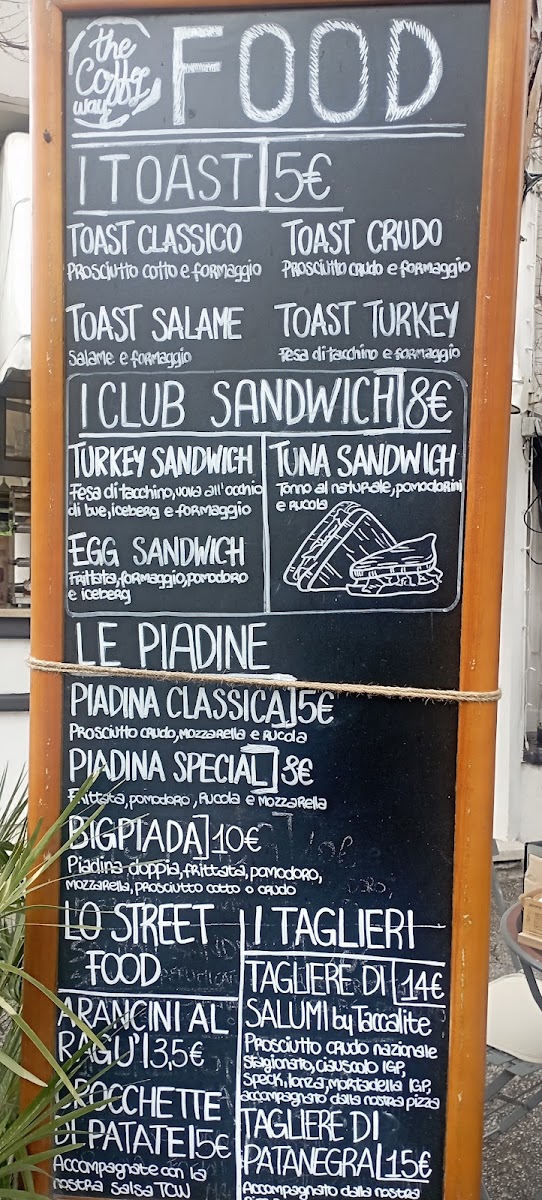 the
Coffee
way
FOOD
I TOAST 5€
TOAST CLASSICO
Prosciutto cotto e formaggio
TOAST CRUDO
Prosciutto crudo e formaggio
TOAST SALAME
Salame e formaggio
TOAST TURKEY
Fesa di tacchino e formaggio
I CLUB SANDWICH 8€
TURKEY SANDWICH
Fesa di tacchino, uova all'occhio
di bue, iceberg e formaggio
EGG SANDWICH
Frittata, formaggio, pomodoro
e iceberg
TUNA SANDWICH
Tonno al naturale, pomodorini
e rucola
LE PIADINE
PIADINA CLASSICA 5€
Prosciutto crudo, mozzarella e rucola
PIADINA SPECIAL 8€
Frittata, pomodoro, rucola e mozzarella
BIGPIADA 10€
Piadina doppia, frittata, pomodoro,
mozzarella, prosciutto cotto o crudo
LO STREET
FOOD
ARANCINI AL
RAGU' 3,5€
CROCCHETTE
DI PATATE 5€
Accompagnate con la
nostra salsa TCW
I TAGLIERI
TAGLIERE DI 14€
SALUMI by Taccalite
Prosciutto crudo nazionale
stagionato, ciauscolo IGP,
Speck, lonza, mortadella IGP,
accompagnato dalla nostra pizza
TAGLIERE DI
PATANEGRA 15€
Accompagnato dalla nostra